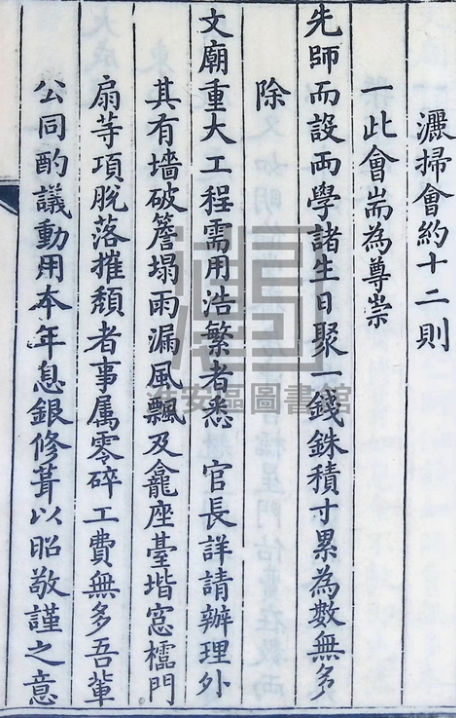 灑掃會約十二則
一此會耑為尊崇
先師而設両學諸生日聚一錢銖積寸累為數無多
除
文廟重大工程需用浩繁者悉 官長詳請辦理外
其有墻破簷塌雨漏風飄及龕座臺堦窓櫺門
扇等項脫落摧頽者事属零碎工費無多吾輩
公同酌議動用本年息銀修葺以昭敬謹之意
淮安區圖書館